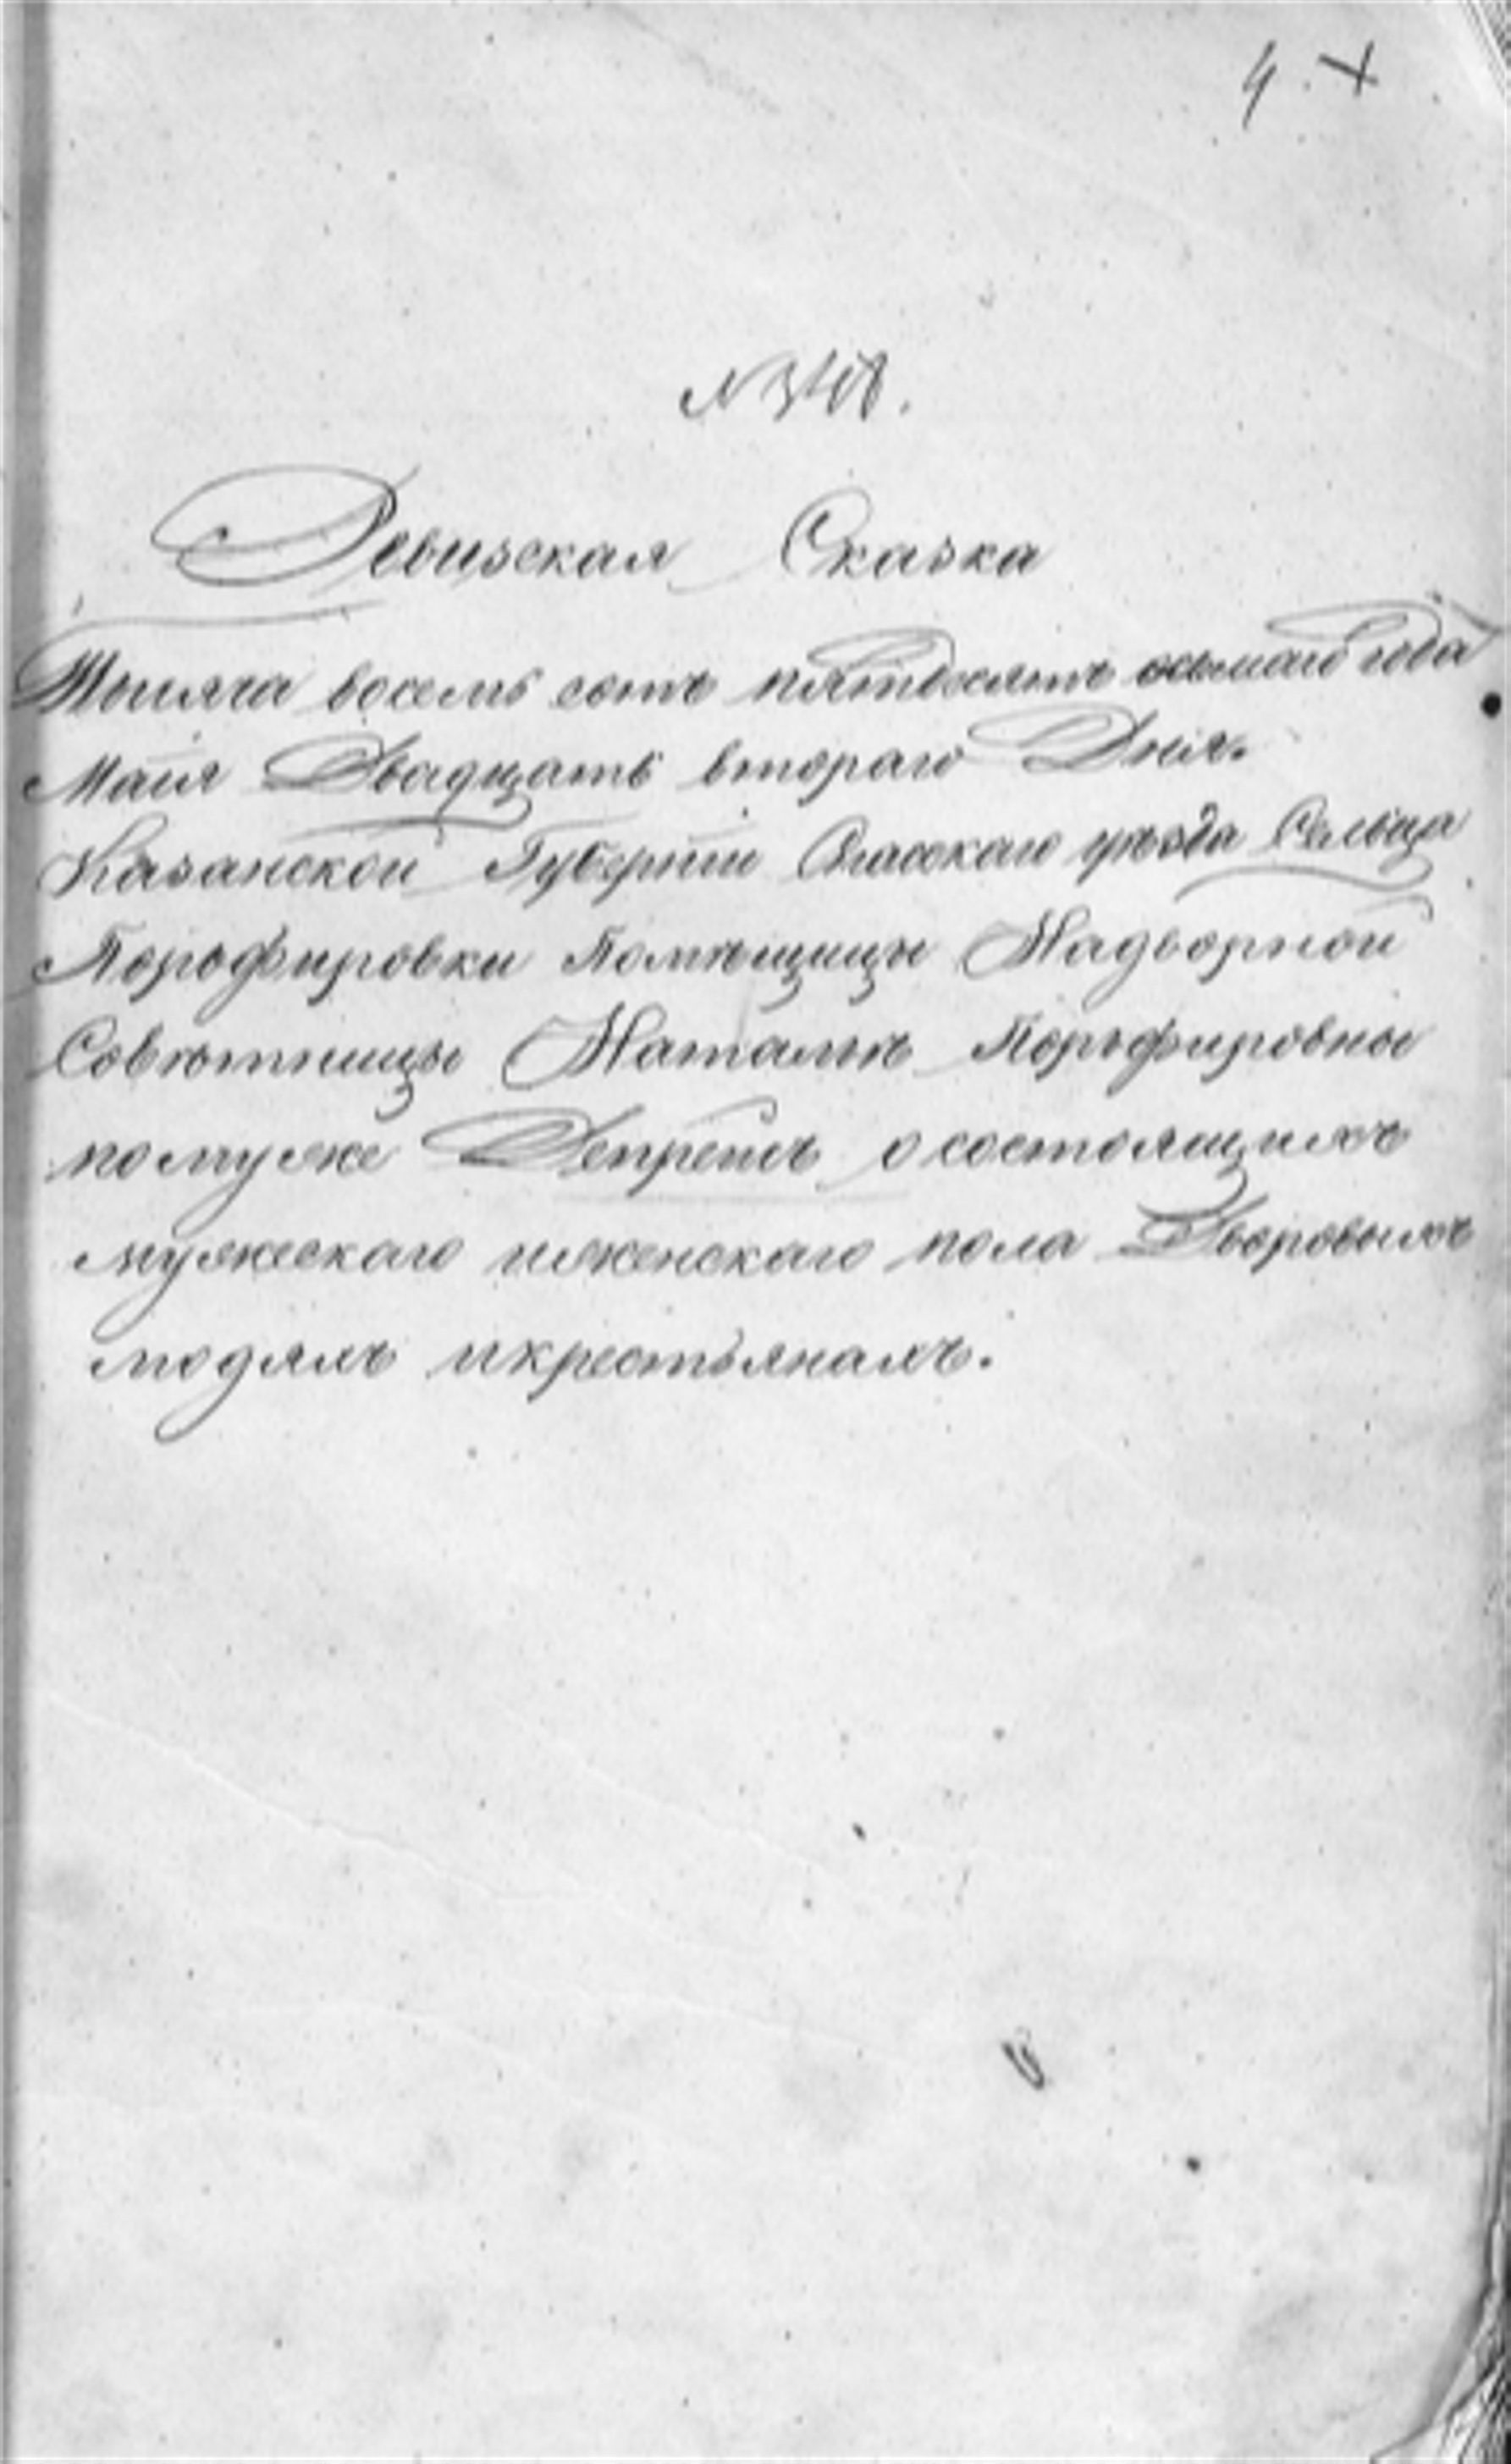 4.
Ревизская Сказка
Тысяча восемь сотъ пятьдесятъ осьмаго года
Маія Двадцать втораго Дня.
Казанской Губерніи Спасскаго уѣзда Сельца
Порфировки Помѣщицы Надворной
Совѣтницы Натальи Порфировны
по муже Депрейсъ о состоящихъ
мужескаго и женскаго пола Дворовыхъ
людямъ и крестьянахъ.